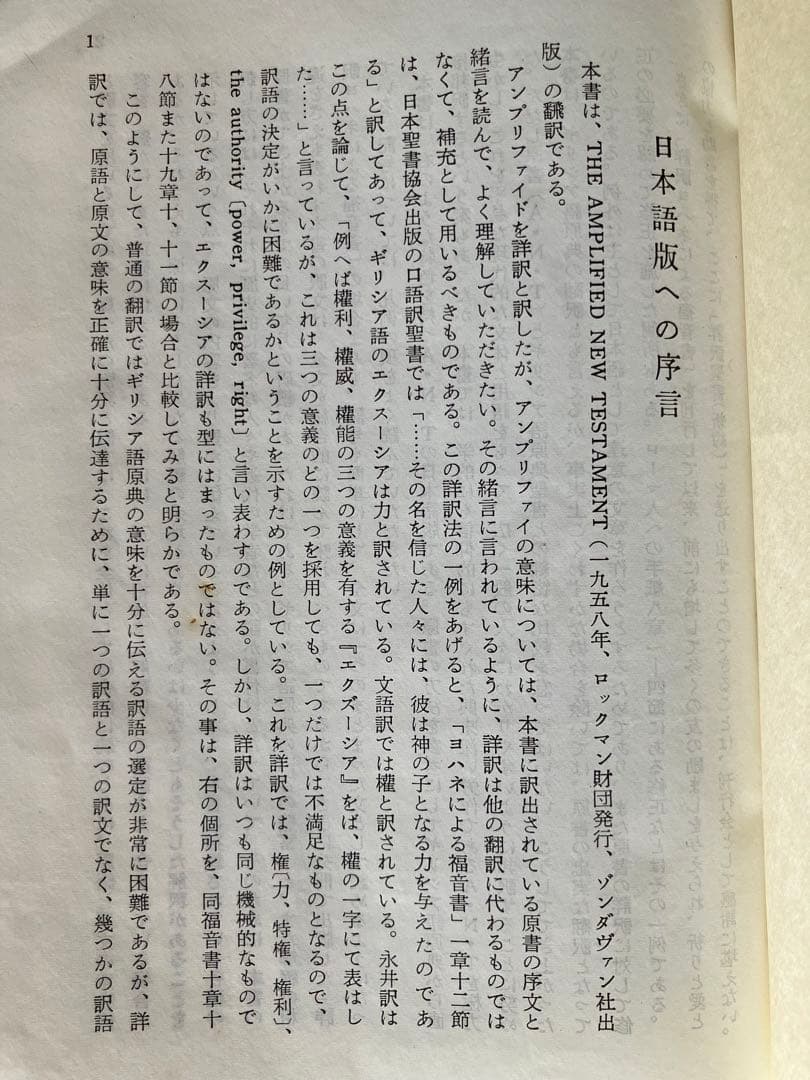 日本語版への序言
本書は、THE AMPLIFIED NEW TESTAMENT（一九五八年、ロックマン財団発行、ゾンダヴァン社出
版）の飜訳である。
アンプリファイドを詳訳と訳したが、アンプリファイの意味については、本書に訳出されている原書の序文と
緒言を読んで、よく理解していただきたい。その緒言に言われているように、詳訳は他の翻訳に代わるものでは
なくて、補充として用いるべきものである。この詳訳法の一例をあげると、「ヨハネによる福音書」一章十二節
は、日本聖書協会出版の口語訳聖書では「……その名を信じた人々には、彼は神の子となる力を与えたのであ
る」と訳してあって、ギリシア語のエクスーシアは力と訳されている。文語訳では權と訳されている。永井訳は
この点を論じて、「例へば權利、權威、權能の三つの意義を有する『エクズーシア』をば、權の一字にて表はし
た……」と言っているが、これは三つの意義のどの一つを採用しても、一つだけでは不満足なものとなるので、
訳語の決定がいかに困難であるかということを示すための例としている。これを詳訳では、権〔力、特権、権利〕、
the authority〔power, privilege, right〕と言い表わすのである。しかし、詳訳はいつも同じ機械的なもので
はないのであって、エクスーシアの詳訳も型にはまったものではない。その事は、右の個所を、同福音書十章十
八節また十九章十、十一節の場合と比較してみると明らかである。
このようにして、普通の翻訳ではギリシア語原典の意味を十分に伝える訳語の選定が非常に困難であるが、詳
訳では、原語と原文の意味を正確に十分に伝達するために、単に一つの訳語と一つの訳文でなく、幾つかの訳語
1